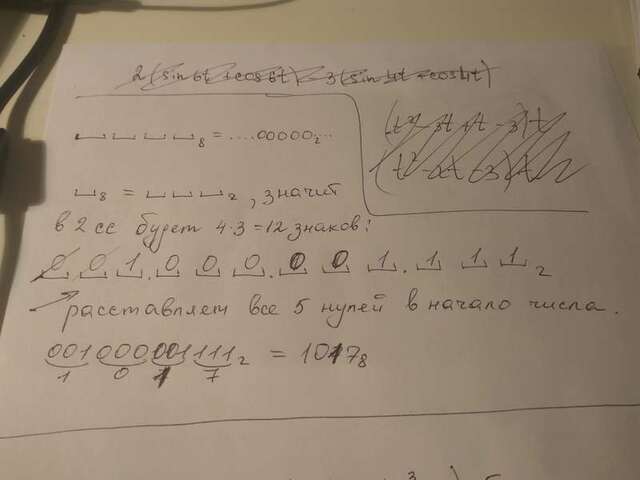 2(sin6t + cos6t) - 3(sin4t + cos4t)
(t² - 3t + t - 3)t
_ _ _ _₈ = ....00000₂...
_₈ = _ _ _₂, значит
в 2 сс будет 4·3=12 знаков:
0 0 1.0 0 0.0 0 1.1 1 1₂
расставляем все 5 нулей в начало числа.
001000001111₂ = 1017₈
1 0 1 7